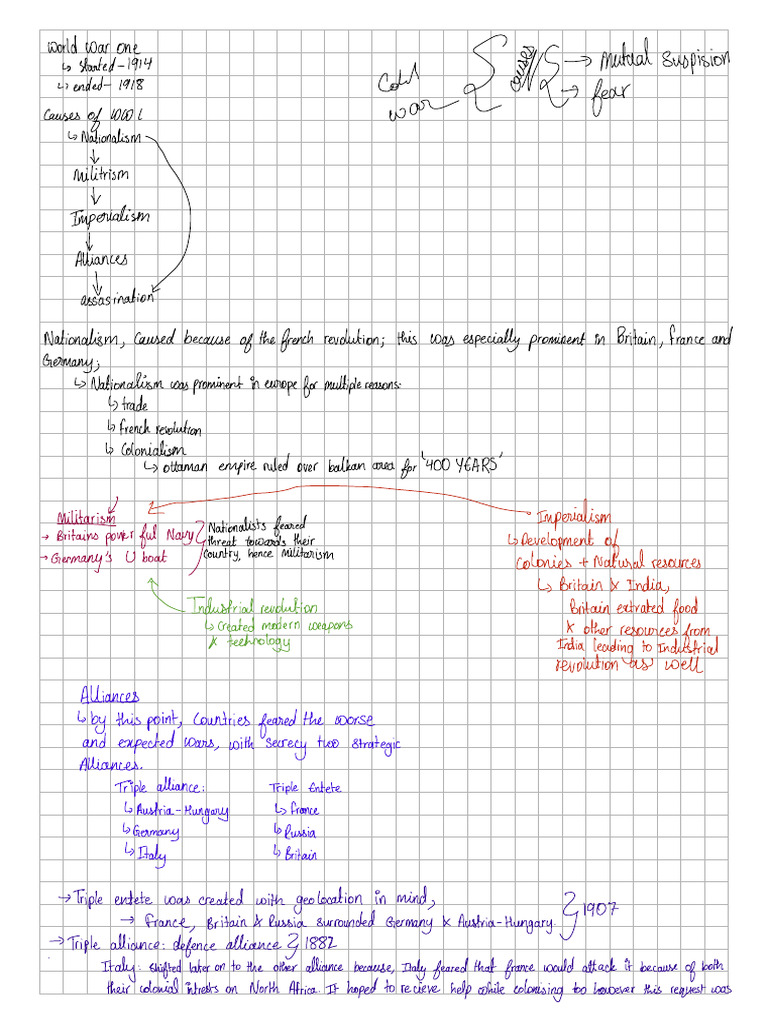 World War One
↳ started - 1914
↳ ended - 1918
Causes of WW1
↳ Nationalism
Militrism
Imperialism
Alliances
assasination
Cold
war
causes
→ Mutual suspision
→ fear
Nationalism, Caused because of the french revolution; this was especially prominent in Britain, france and
Germany;
↳ Nationalism was prominent in europe for multiple reasons:
↳ trade
↳ french revolution
↳ Colonialism
↳ ottaman empire ruled over balkan area for '400 YEARS'
Militarism
→ Britains power ful Navy
→ Germany's U boat
Nationalists feared
threat towards their
country, hence militarism
Industrial revolution
↳ Created modern weapons
& technology
Imperialism
↳ Development of
colonies + Natural resources
↳ Britain & India,
Britain extrated food
& other resources from
India leading to Industrial
revolution as well
Alliances
↳ by this point, Countries feared the worse
and expected wars, with secrecy two strategic
Alliances.
Triple alliance:
↳ Austria-Hungary
↳ Germany
↳ Italy
Triple Entete
↳ France
↳ Russia
↳ Britain
→ Triple entete was created with geolocation in mind,
→ France, Britain & Russia surrounded Germany & Austria-Hungary.
1907
→ Triple alliance: defence alliance } 1882
Italy: shifted later on to the other alliance because, Italy feared that france would attack it because of both
their colonial intrests on North Africa. It hoped to recieve help while colonising too however this request was